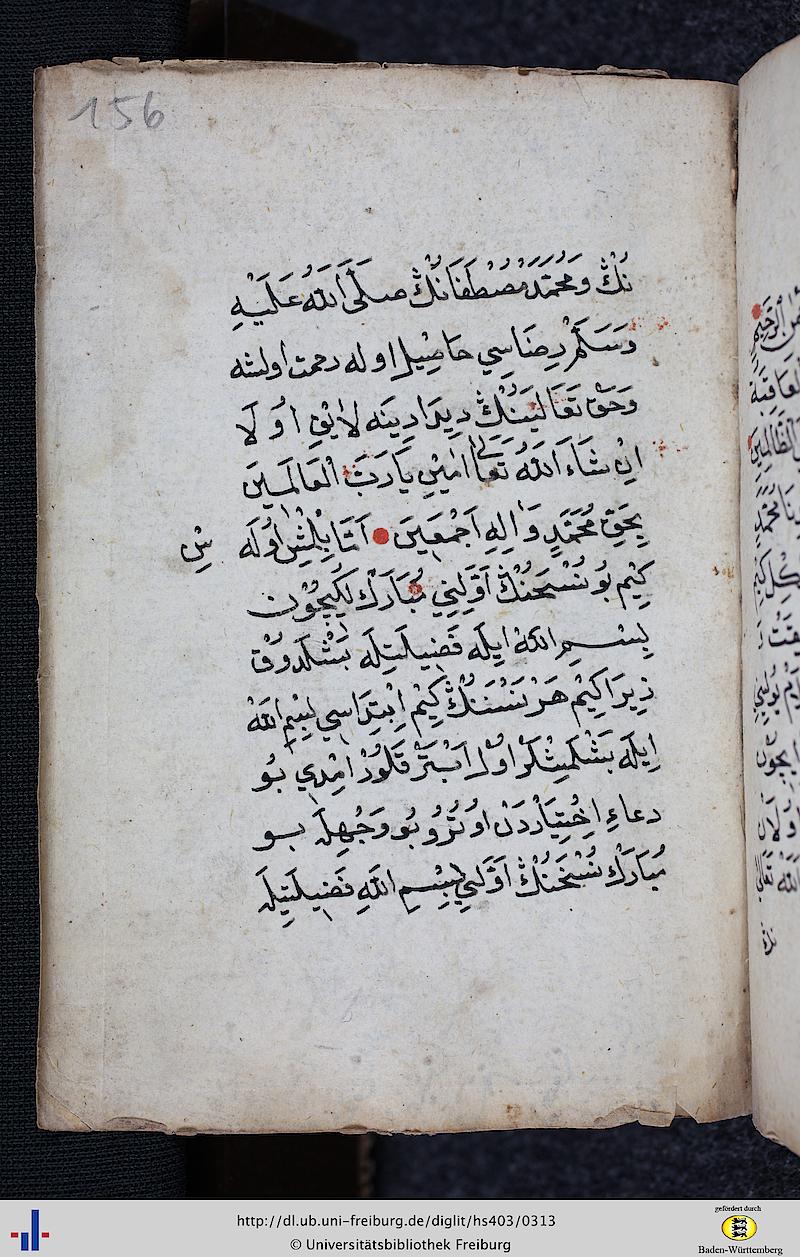 156
نُكْ وَمُحَمَّدَ مُصْطَفَانُكْ صَلَّى اللَّهُ عَلَيْهِ
وَسَلَّمْ رِضَاسِي حَاصِيل اوله رحمت اولنه
وَحَقْ تَعَالَيَنُكْ دِيدَارِينَه لَايِقْ اُولَا
اِنْ شَاءَ اللَّهُ تَعَالَى امِينْ يَا رَبَّ الْعَالَمِينَ
بِحَقِّ مُحَمَّدٍ وَالِهِ اَجْمَعِينَ اَمَّا بِلْمُشِ اُولَه سِْ
كِيم بُو نُسْحَنُكْ اَوَّلِنِي مُبَارَك لِكِيچُون
بِسْمِ اللَّهْ ايلَه فَضِيلَتِلَه بَشْلَدُوقْ
زِيرَا كِيمْ هَرْ نَسْنَنُكْ كِيم اِبْتِدَاسِي بِسْمِ اللَّهْ
اِيلَه بَشْلَمِشْلَر اُولْ اَبْتَرْ قَلُورْ اِمْدِي بُو
دعاءِ اِخْتِيَارْدَنْ اوُتُرُو بُو وَجْهِلَه بو
مُبَارَكْ نُسْخَنُكْ اَوَّلَنِي بِسْمِ اللَّهِ فَضِيلَتِلَه
http://dl.ub.uni-freiburg.de/diglit/hs403/0313
© Universitätsbibliothek Freiburg
gefördert durch
Baden-Württemberg